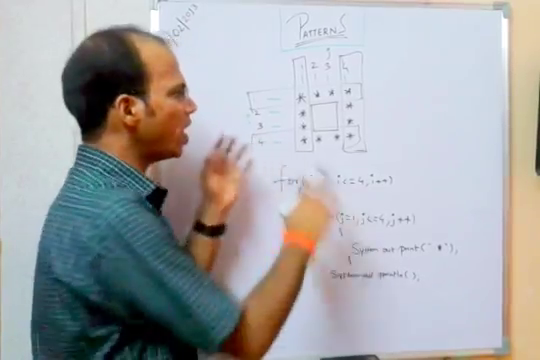 /02/2013
PATTERNS
j
1 2 3 4
* * * *
2 * *
3 * *
4 * * * *
for i<=4, i++)
(j=1, j<=4, j++)
{
System.out.print(" * "),
}
System.out.println( ),